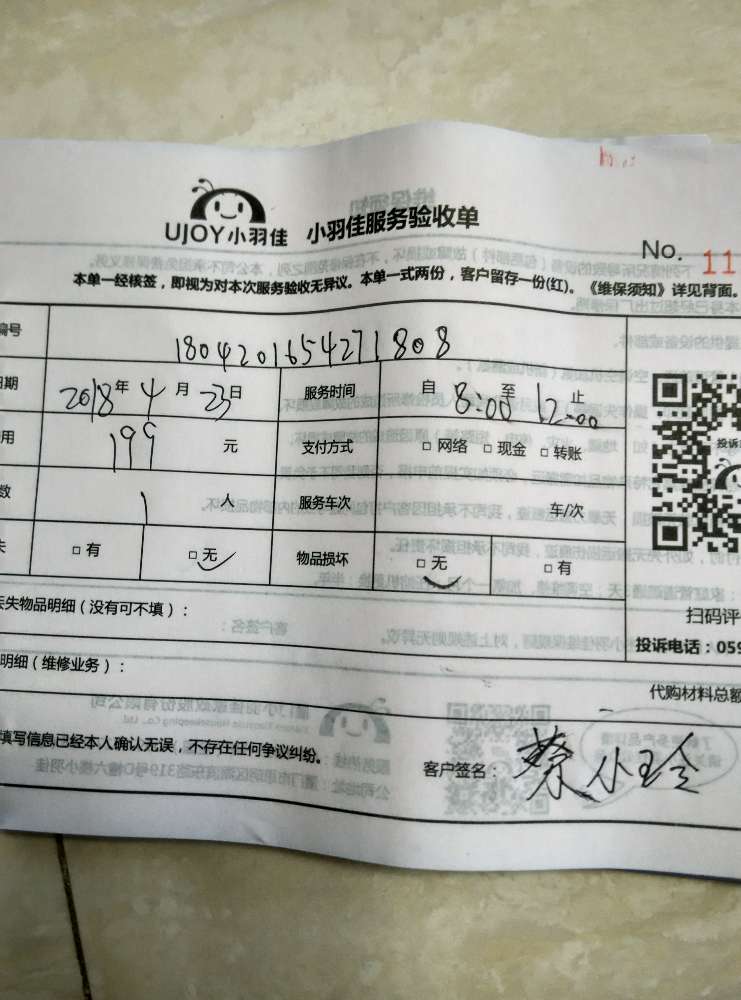 UJOY小羽佳 小羽佳服务验收单
No. 11
本单一经核签，即视为对本次服务验收无异议。本单一式两份，客户留存一份(红)。《维保须知》详见背面。
编号 1804201654271808
日期 2018年4月23日 服务时间 自8:00至12:00止
用 199 元 支付方式 □网络 □现金 □转账
数 1 人 服务车次 车/次
失 □有 □无 物品损坏 □无 □有
丢失物品明细（没有可不填）：
明细（维修业务）：
扫码评
投诉电话：059
代购材料总额
填写信息已经本人确认无误，不存在任何争议纠纷。
客户签名：蔡小玲